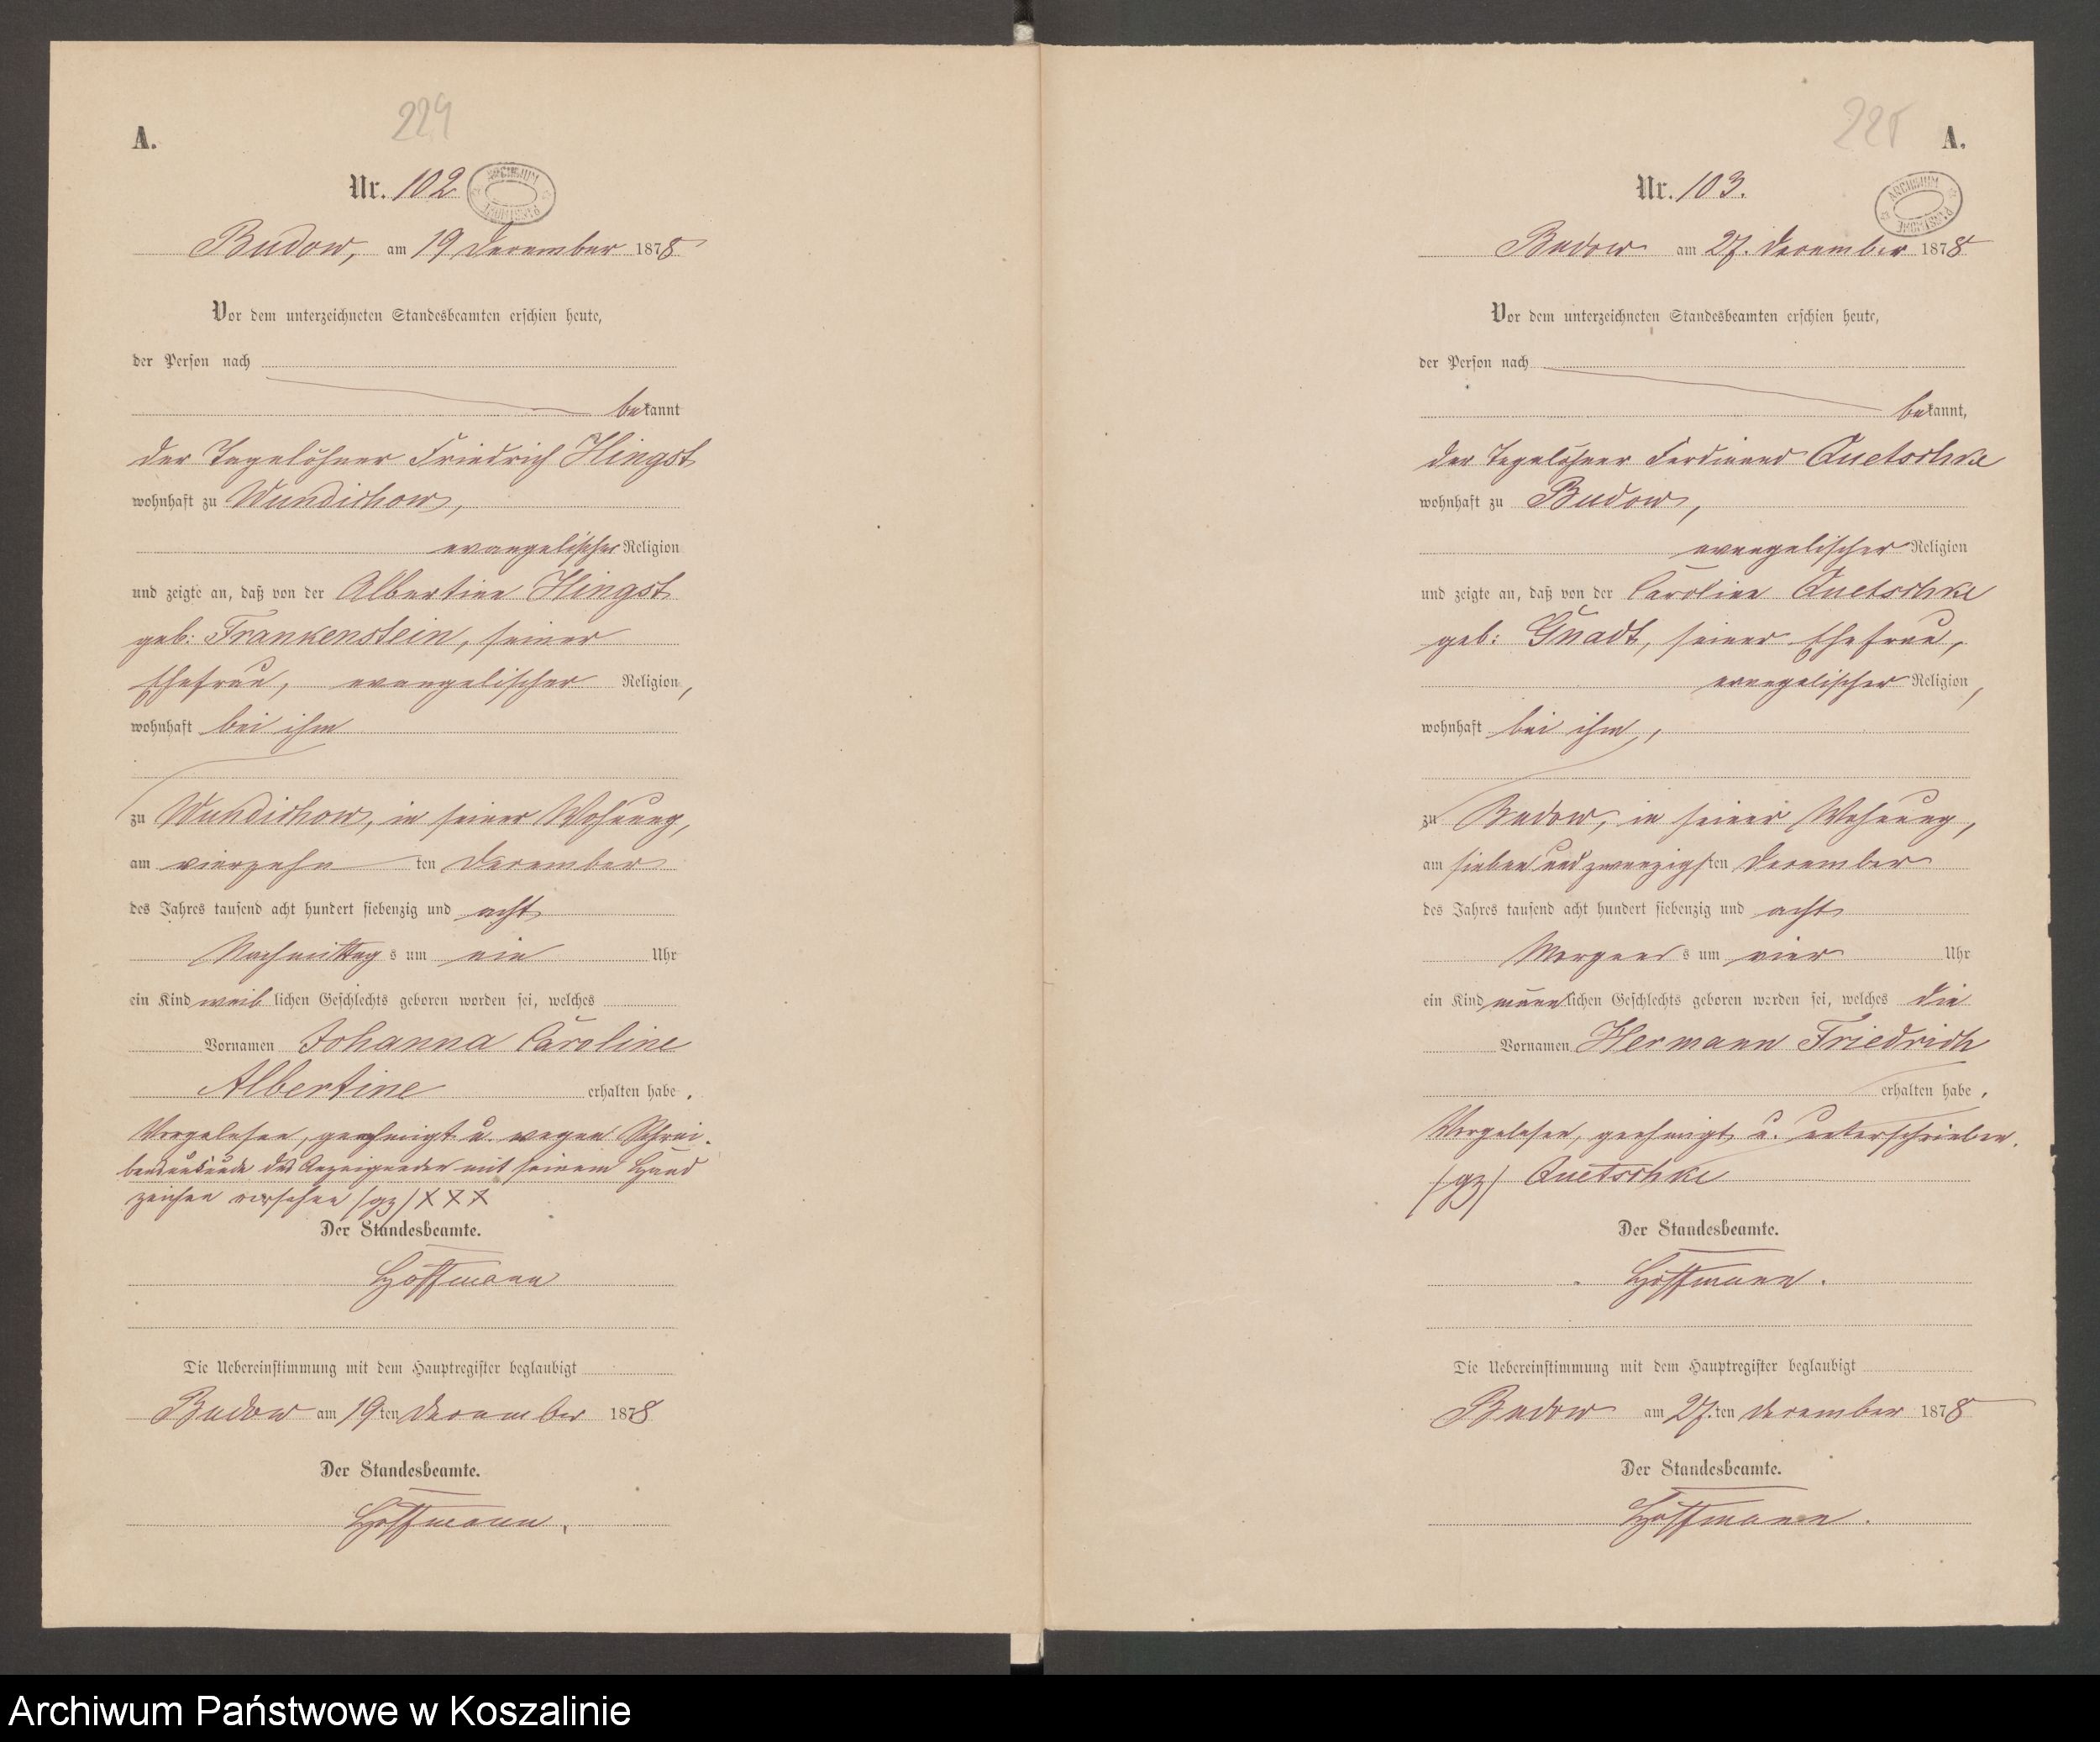 224
A.
Nr. 102
ARCHIWUM PAŃSTWOWE
Budow, am 19 December 1878
Vor dem unterzeichneten Standesbeamten erschien heute,
der Person nach
bekannt
der Tagelöhner Friedrich Hingst
wohnhaft zu Wundichow,
evangelischer Religion
und zeigte an, daß von der Albertine Hingst
geb: Frankenstein, seiner
Ehefrau, evangelischer Religion,
wohnhaft bei ihm
zu Wundichow, in seiner Wohnung,
am vierzehn ten December
des Jahres tausend acht hundert siebenzig und acht
Nachmittags um ein Uhr
ein Kind weiblichen Geschlechts geboren worden sei, welches
Vornamen Johanna Caroline
Albertine erhalten habe.
Vorgelesen, genehmigt u. wegen Schrei-
bensunkunde des Anzeigenden mit seinem Hand
zeichen versehen (gz) XXX
Der Standesbeamte.
Hoffmann
Die Uebereinstimmung mit dem Hauptregister beglaubigt
Budow am 19ten December 1878
Der Standesbeamte.
Hoffmann.
225
A.
Nr. 103.
ARCHIWUM PAŃSTWOWE
Budow am 27. December 1878
Vor dem unterzeichneten Standesbeamten erschien heute,
der Person nach
bekannt,
der Tagelöhner Ferdinand Quetschke
wohnhaft zu Budow,
evangelischer Religion
und zeigte an, daß von der Caroline Quetschke
geb: Gnadt, seiner Ehefrau,
evangelischer Religion,
wohnhaft bei ihm,
zu Budow, in seiner Wohnung,
am sieben und zwanzigsten December
des Jahres tausend acht hundert siebenzig und acht
Morgens um vier Uhr
ein Kind männlichen Geschlechts geboren worden sei, welches die
Vornamen Hermann Friedrich
erhalten habe.
Vorgelesen, genehmigt u. unterschrieben.
(gz) Quetschke
Der Standesbeamte.
Hoffmann.
Die Uebereinstimmung mit dem Hauptregister beglaubigt
Budow am 27.ten December 1878
Der Standesbeamte.
Hoffmann.
Archiwum Państwowe w Koszalinie